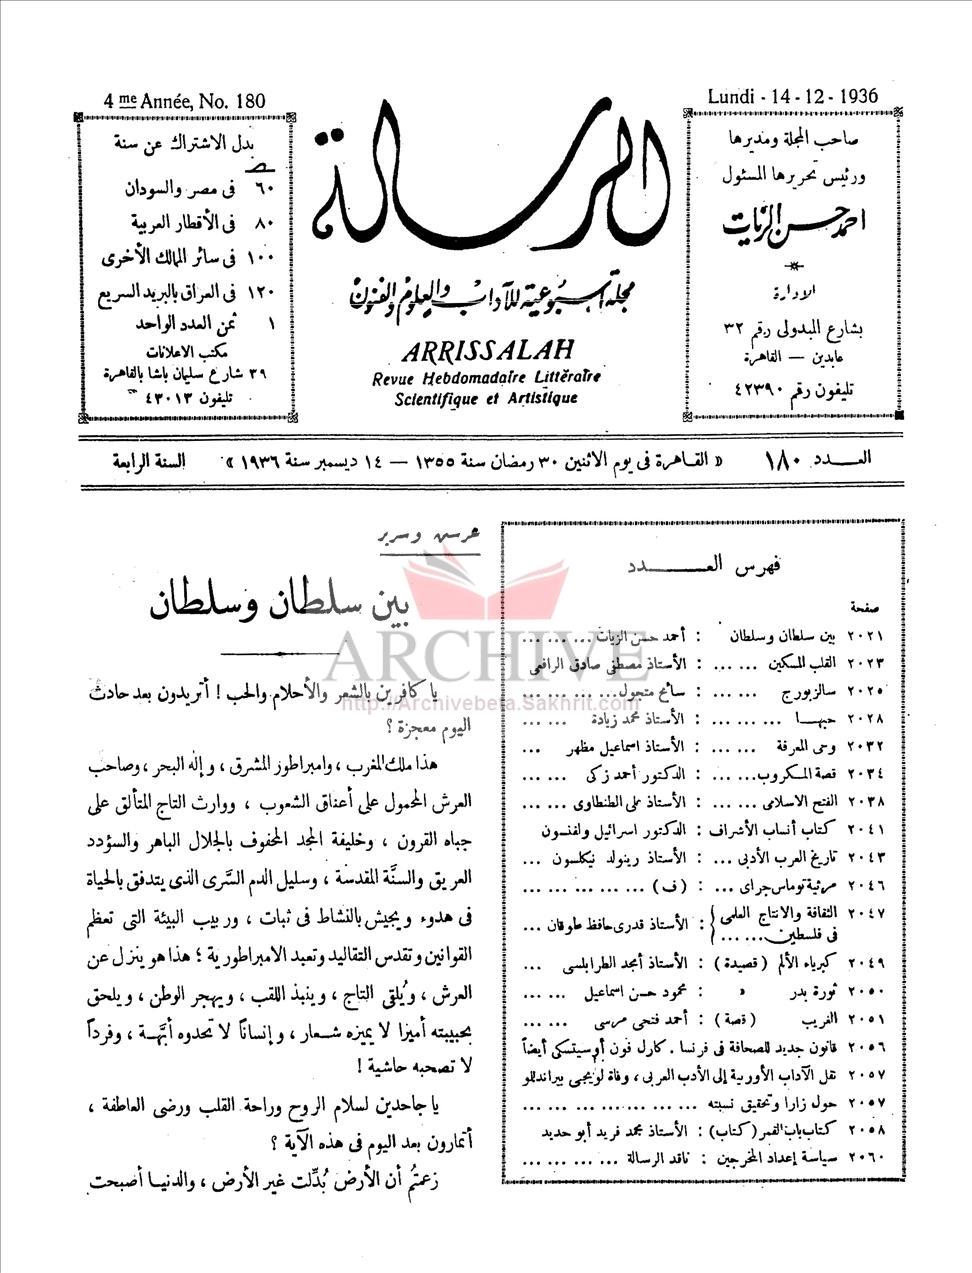 4me Année, No. 180
Lundi - 14 - 12 - 1936
صاحب المجلة ومديرها
ورئيس تحريرها المسئول
احمد حسن الزيات
الادارة
بشارع المبدولى رقم ٣٢
عابدين — القاهرة
تليفون رقم ٤٢٣٩٠
الرسالة
مجلة أسبوعية للآداب والعلوم والفنون
ARRISSALAH
Revue Hebdomadaire Littéraire
Scientifique et Artistique
بدل الاشتراك عن سنة
٦٠ فى مصر والسودان
٨٠ فى الأقطار العربية
١٠٠ فى سائر الممالك الأخرى
١٢٠ فى العراق بالبريد السريع
١ ثمن العدد الواحد
مكتب الاعلانات
٣٩ شارع سليمان باشا بالقاهرة
تليفون ٤٣٠١٣
العـــدد ١٨٠ « القاهرة فى يوم الاثنين ٣٠ رمضان سنة ١٣٥٥ — ١٤ ديسمبر سنة ١٩٣٦ » السنة الرابعة
فهرس العـــــدد
صفحة
٢٠٢١ بين سلطان وسلطان : أحمد حسن الزيات ... ... ...
٢٠٢٣ القلب المسكين ... ... : الأستاذ مصطفى صادق الرافعى
٢٠٢٥ سالزبورج ... ... : سائح متجول... ... ... ...
٢٠٢٨ حبهــا ... ... ... : الأستاذ محمد زيادة ... ...
٢٠٣٢ وحى المعرفة ... ... : الأستاذ اسماعيل مظهر ...
٢٠٣٤ قصة المكروب... ... : الدكتور أحمد زكى ... ...
٢٠٣٨ الفتح الاسلامى ... ... : الأستاذ على الطنطاوى ... ...
٢٠٤١ كتاب أنساب الأشراف : الدكتور اسرائيل ولفنسون
٢٠٤٣ تاريخ العرب الأدبى ... : الأستاذ رينولد نيكلسون ...
٢٠٤٦ مرثية توماس جراى ... : ( ف ) ... ... ... ... ...
٢٠٤٧ الثقافة والانتاج العلمى فى فلسطين... ... ... : الأستاذ قدرى حافظ طوقان ...
٢٠٤٩ كبرياء الألم ( قصيدة ) : الأستاذ أمجد الطرابلسى ...
٢٠٥٠ ثورة بدر » : محمود حسن اسماعيل ... ...
٢٠٥١ الغريب ( قصة ) : أحمد فتحى مرسى ... ...
٢٠٥٦ قانون جديد للصحافة فى فرنسا . كارل فون أوسيتسكى أيضاً
٢٠٥٧ نقل الآداب الأوربية إلى الأدب العربى ، وفاة لويجى بيراندللو
٢٠٥٧ حول زارا وتحقيق نسبته ... ... ... ... ... ... ...
٢٠٥٨ كتاب باب القمر (كتاب) : الأستاذ محمد فريد أبو حديد
٢٠٦٠ سياسة إعداد المخرجين : ناقد الرسالة ... ... ... ...
عرس وسرير
بين سلطان وسلطان
يا كافرين بالشعر والأحلام والحب ! أتريدون بعد حادث
اليوم معجزة ؟
هذا ملك المغرب ، وامبراطور المشرق ، وإله البحر ، وصاحب
العرش المحمول على أعناق الشعوب ، ووارث التاج المتألق على
جباه القرون ، وخليفة المجد المحفوف بالجلال الباهر والسؤدد
العريق والسنَّة المقدسة ، وسليل الدم السَّرى الذى يتدفق بالحياة
فى هدوء ويجيش بالنشاط فى ثبات ، وربيب البيئة التى تعظم
القوانين وتقدس التقاليد وتعبد الامبراطورية ؛ هذا هو ينزل عن
العرش ، ويُلقى التاج ، وينبذ اللقب ، ويهجر الوطن ، ويلحق
بحبيبته أميرًا لا يميزه شعار ، وإنسانًا لا تحدوه أبَّهة ، وفرداً
لا تصحبه حاشية !
يا جاحدين لسلام الروح وراحة القلب ورضى العاطفة ،
أتمارون بعد اليوم فى هذه الآية ؟
زعمتُم أن الأرض بُدِّلت غير الأرض ، والدنيا أصبحت
ARCHIVE
http://Archivebeta.Sakhrit.com